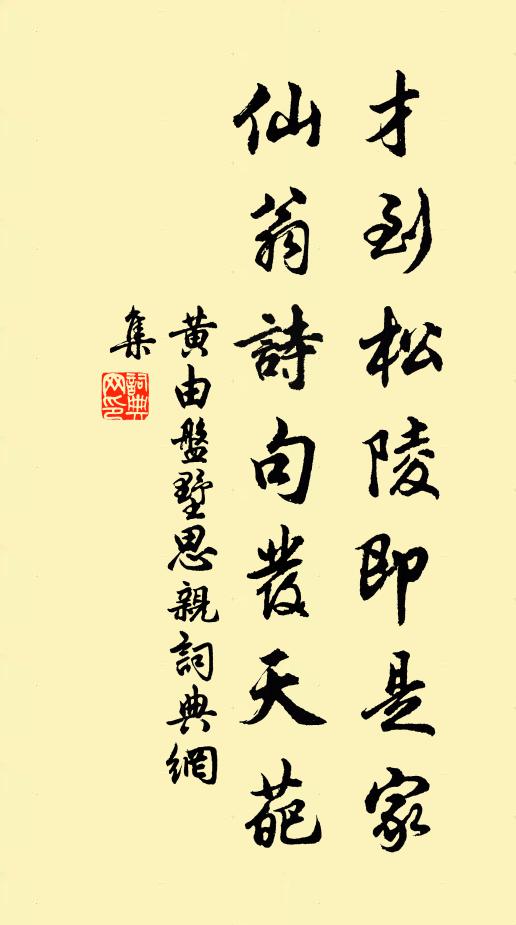 才到松陵即是家
仙翁詩句發天葩
黄由盤墅思親詞典網
集
詞典網印